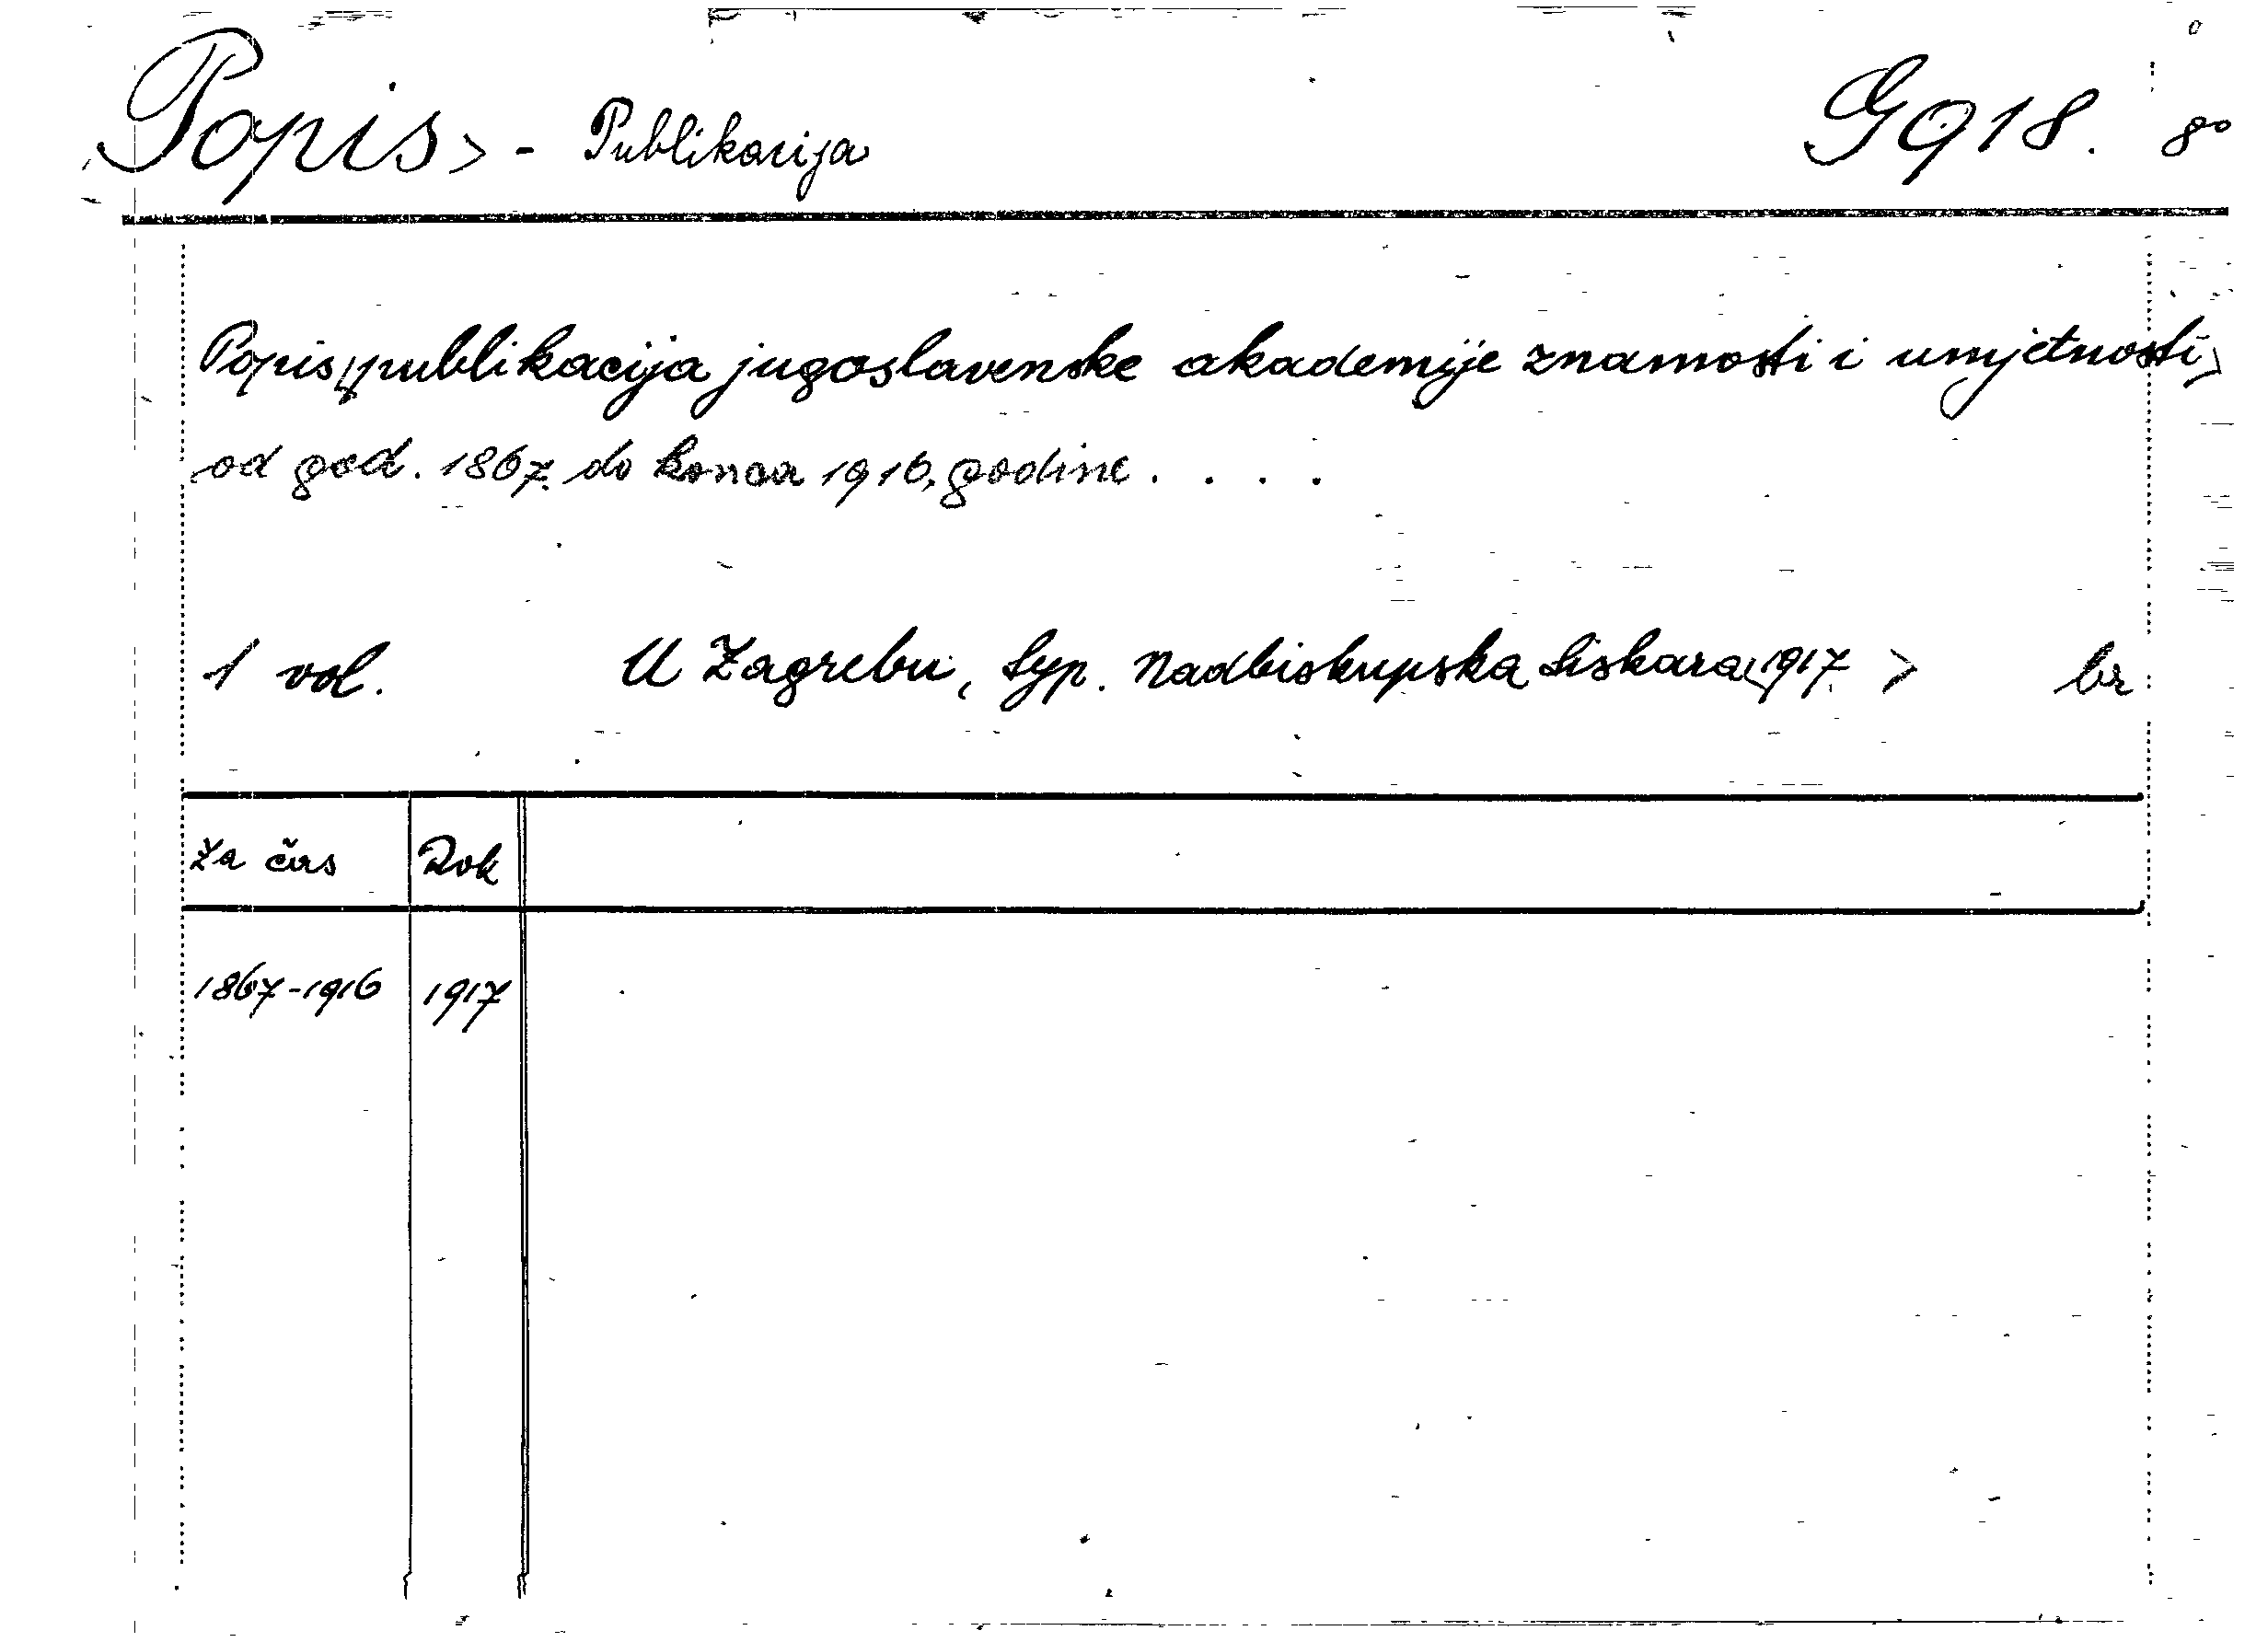 Popis > - Publikacija G 918. 8°
Popis publikacija jugoslavenske akademije znanosti i umjetnosti,
od god. 1867. do konca 1916. godine . . . .
1 vol. U Zagrebu, Typ. Nadbiskupska tiskara 1917. > br
Za čas Rok
1867-1916 1917